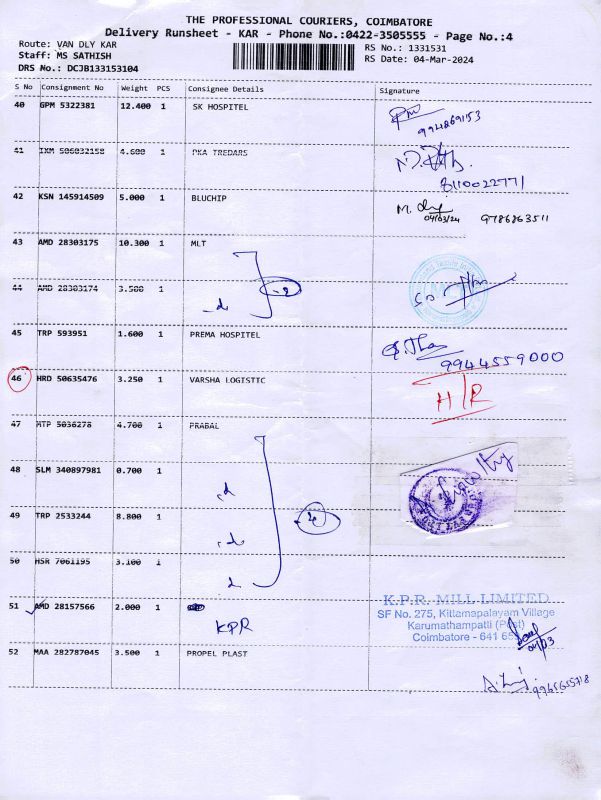 THE PROFESSIONAL COURIERS, COIMBATORE
Delivery Runsheet - KAR - Phone No.:0422-3505555 - Page No.:4
Route: VAN DLY KAR
Staff: MS SATHISH
DRS No.: DCJB133153104
RS No.: 1331531
RS Date: 04-Mar-2024
S No Consignment No Weight PCS Consignee Details Signature
40 GPM 5322381 12.400 1 SK HOSPITEL
41 IXM 506032158 4.600 1 PKA TREDARS
8110022771
42 KSN 145914509 5.000 1 BLUCHIP
04/03/24 9786863511
43 AMD 28303175 10.300 1 MLT
44 AMD 28303174 3.500 1 d 2
45 TRP 593951 1.600 1 PREMA HOSPITEL
9944559000
46 HRD 50635476 3.250 1 VARSHA LOGISTIC H/R
47 MTP 5036278 4.700 1 PRABAL
48 SLM 340897981 0.700 1 d
49 TRP 2533244 8.800 1 d
50 HSR 7061195 3.100 1 d
51 AMD 28157566 2.000 1 KPR
K.P.R. MILL LIMITED
SF No. 275, Kittampalayam Village
Karumathampatti (Post)
Coimbatore - 641
04/03
52 MAA 282787045 3.500 1 PROPEL PLAST